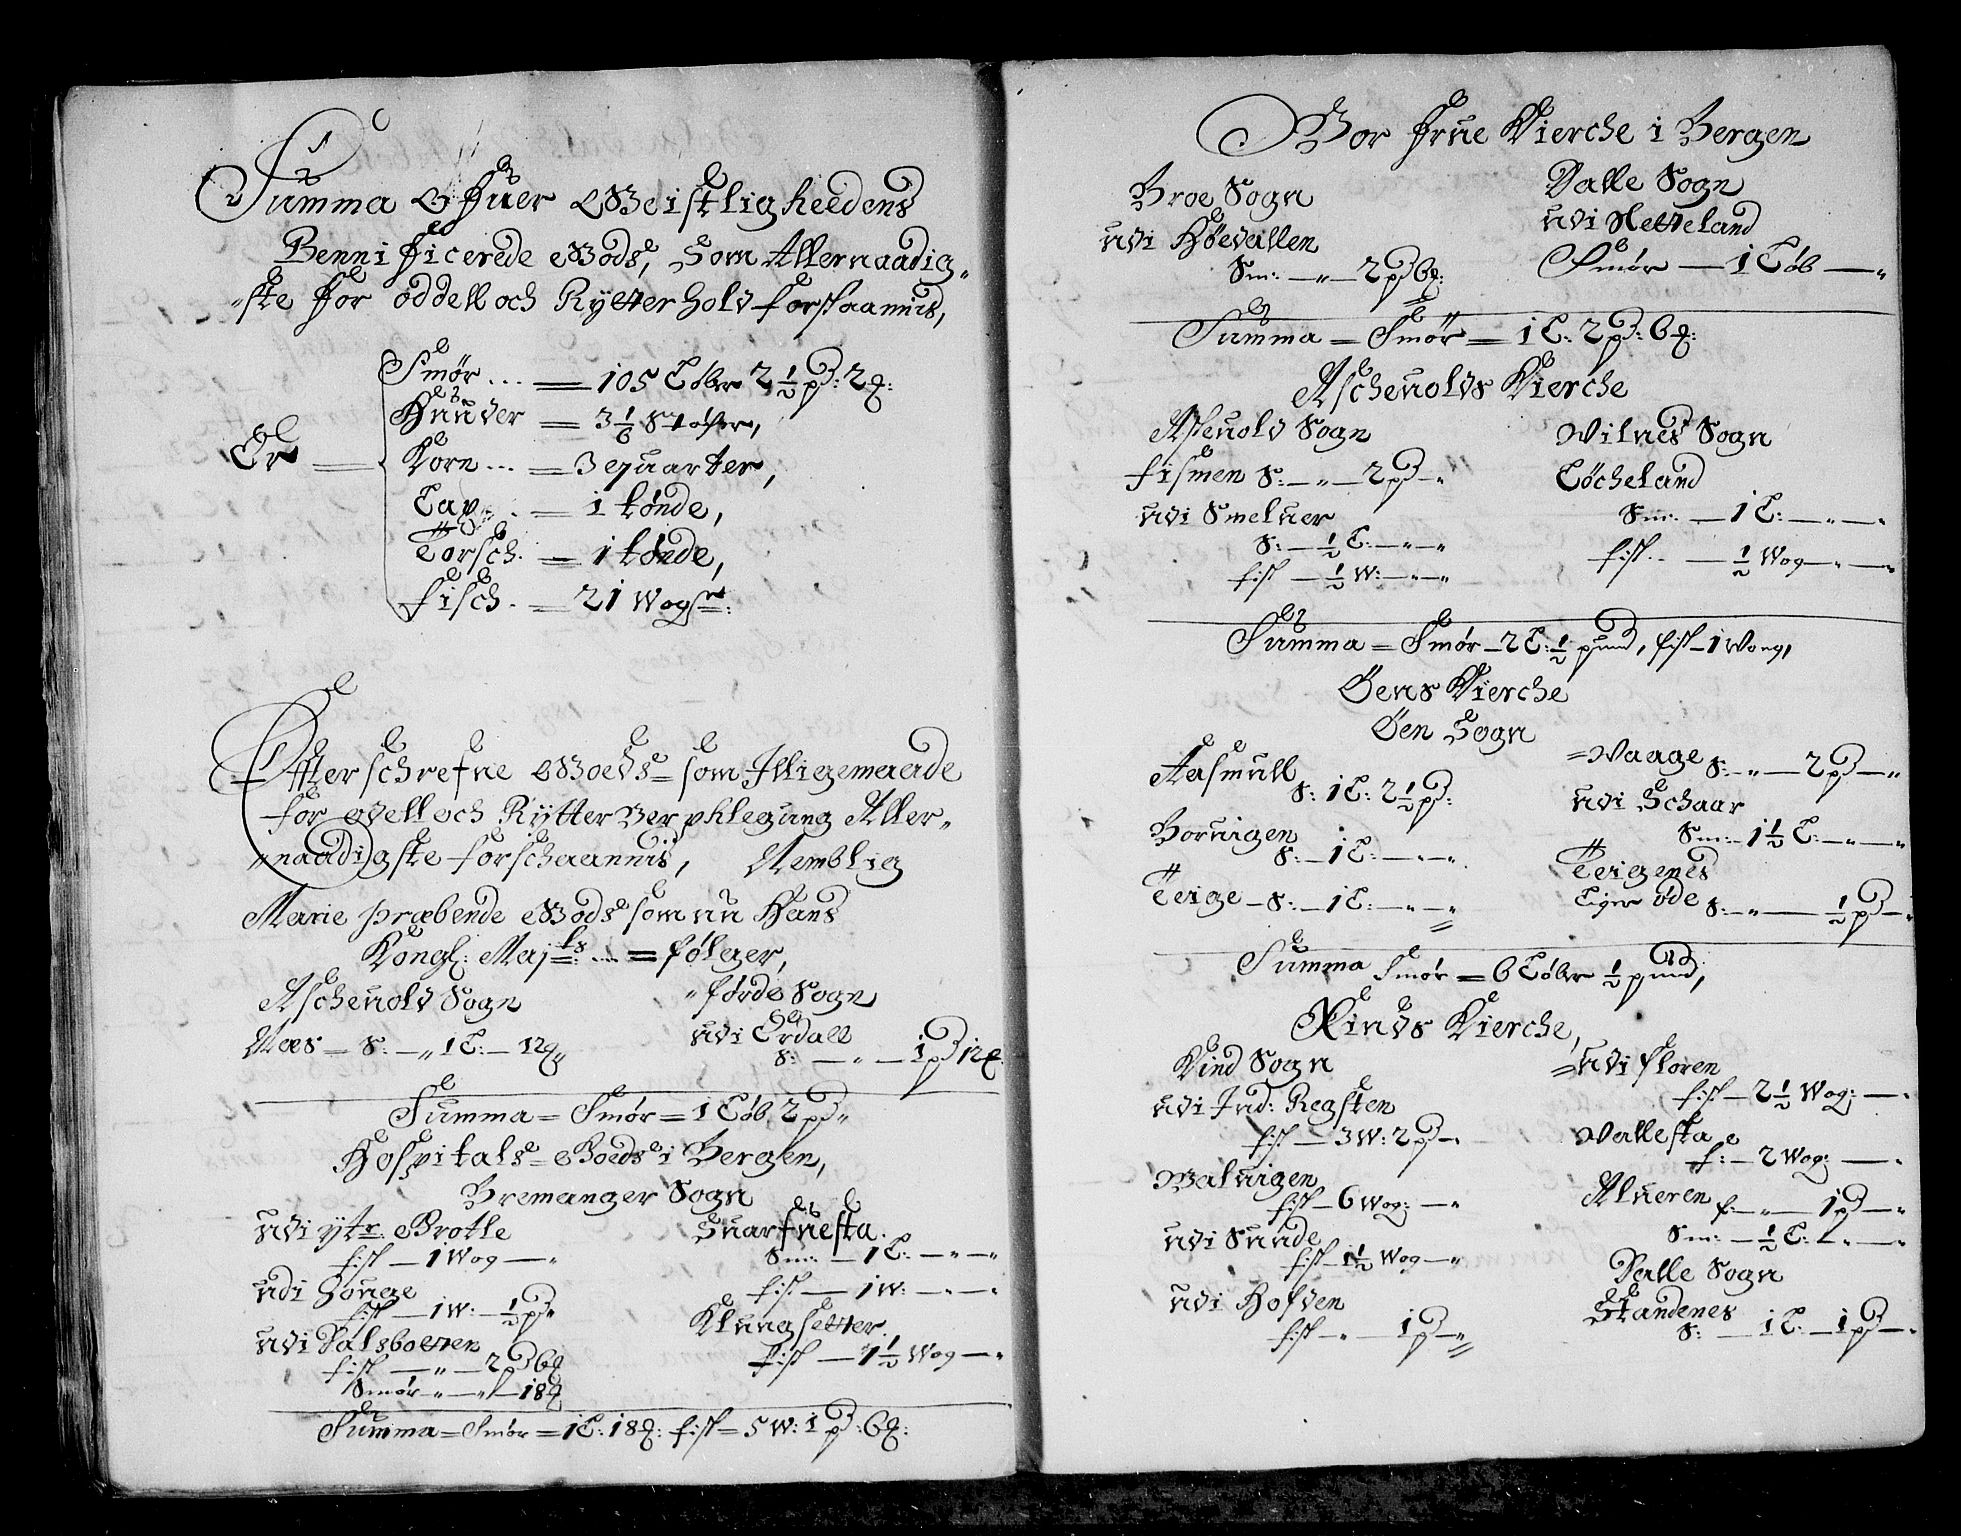 Summa Ofuer Geistligheedens
Bennificerede Godß, Som Allernaadig„
„ste for oddell och Rytterhold forskaannis,
Er = Smør ... = 105 Løber 2½ pd: 2 ℔:
Huuder = 3 1/6 Støcher,
Korn ... = 3 quarter,
Tax .. = 1 tønde,
Torsch. = 1 tønde,
Fisch. = 21 Wogger:
Effterschrefne Goeds = som Iligemaade
for odell och Rytter Verphlegung Aller„
„naadigste forschaannis, Nemblig
Marie præbende Godß som nu Hans
Kongl: Majts: ... = følger,
Ascheuold Sogn
Næs — S: — „ 1 L: — 12 ℔
„førde Sogn
udi Erdall
S: — „ — 1 pd 12 ℔.
Summa = Smør = 1 Løb 2 pd „
Hospitals = Goeds i Bergen,
Bremanger Sogn
udi ytr. Grotle
fisk — 1 Wog — „
udi Houge
fisk — 1 W: — ½ pd „
udi Dalsbotten
fisk — „ — 2 pd 6 ℔
Smør „ — „ — 18 ℔
Suarfuesta.
Sm: — 1 L: — „ — „
fisk — 1 W: — „ — „
Klungsetter.
fisk — 1½ Wog — „
Summa = Smør = 1 L: 18 ℔: fisk = 5 W: 1 pd: 6 ℔:
Vor Frue Kierche i Bergen
Broe Sogn
udi Høevallen
Sm: — „ — 2 pd 6 ℔:
Dalle Sogn
udi Netteland
Smør — 1 Løb — „
Summa = Smør = 1 L: 2 pd: 6 ℔:
Ascheuolds Kierche
Askeuold Sogn
Fismen S: — „ — 2 pd — „
udi Smeluer
S: — ½ L: — „ — „
fisk — ½ W: — „ — „
Wilnes Sogn
Løcheland
Sm: — 1 L: — „ — „
fisk .. — ½ Wog — „ — „
Summa = Smør — 2 L: ½ pund, fisk — 1 Woog,
Øens Kierche
Øen Sogn
Aasmull
S: 1 L: 2½ pd:
Boruigen
S: — 1 L: — „ — „
Teige — S: — 1 L: — „ — „
= Waage S: — „ — 2 pd — „
udi Schaar
Sm: — 1½ L: — „ — „
Teigenes
Liger øde S: — „ — ½ pd — „
Summa Smør = 6 Løber ½ pund,
Kinds Kierche,
Kind Sogn
udi Ind: Regsten
fisk — 3 W: 2 pd — „
Waluigen
fisk — 6 Wog: — „
udi Sunde
fisk — 1½ Wog — „
udi Hofden
fisk — „ — 1 pd — „
= udi Floren
fisk — 2½ Wog: — „
Wallesta
f: — 2 Wog: — „
Alueren f: — „ — 1 pd — „
Sm: — ½ L: — „ — „
Dalle Sogn
Standenes
S: — 1 L: — 1 pd — „